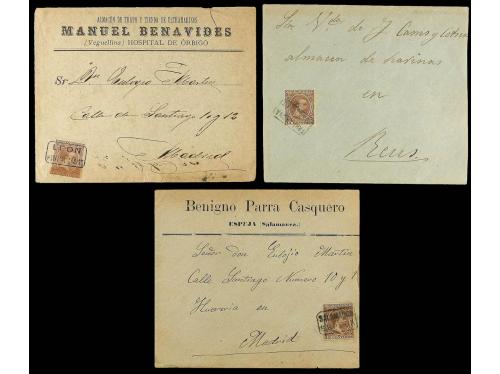 ALMACÉN DE TRAPO Y TIENDA DE ULTRAMARINOS
MANUEL BENAVIDES
(Veguellina) HOSPITAL DE ÓRBIGO
Sr. Dn. Eulogio Martin
Calle de Santiago 10 y 12
Madrid
LEON
Sra. Vda. de J. Cams y
almacen de harinas
en
Reus
Benigno Parra Casquero
ESPEJA (Salamanca.)
Señor don Eulojio Martin
Calle Santiago Numero 10 y 1
Hueveria en
Madrid
SALAMANCA